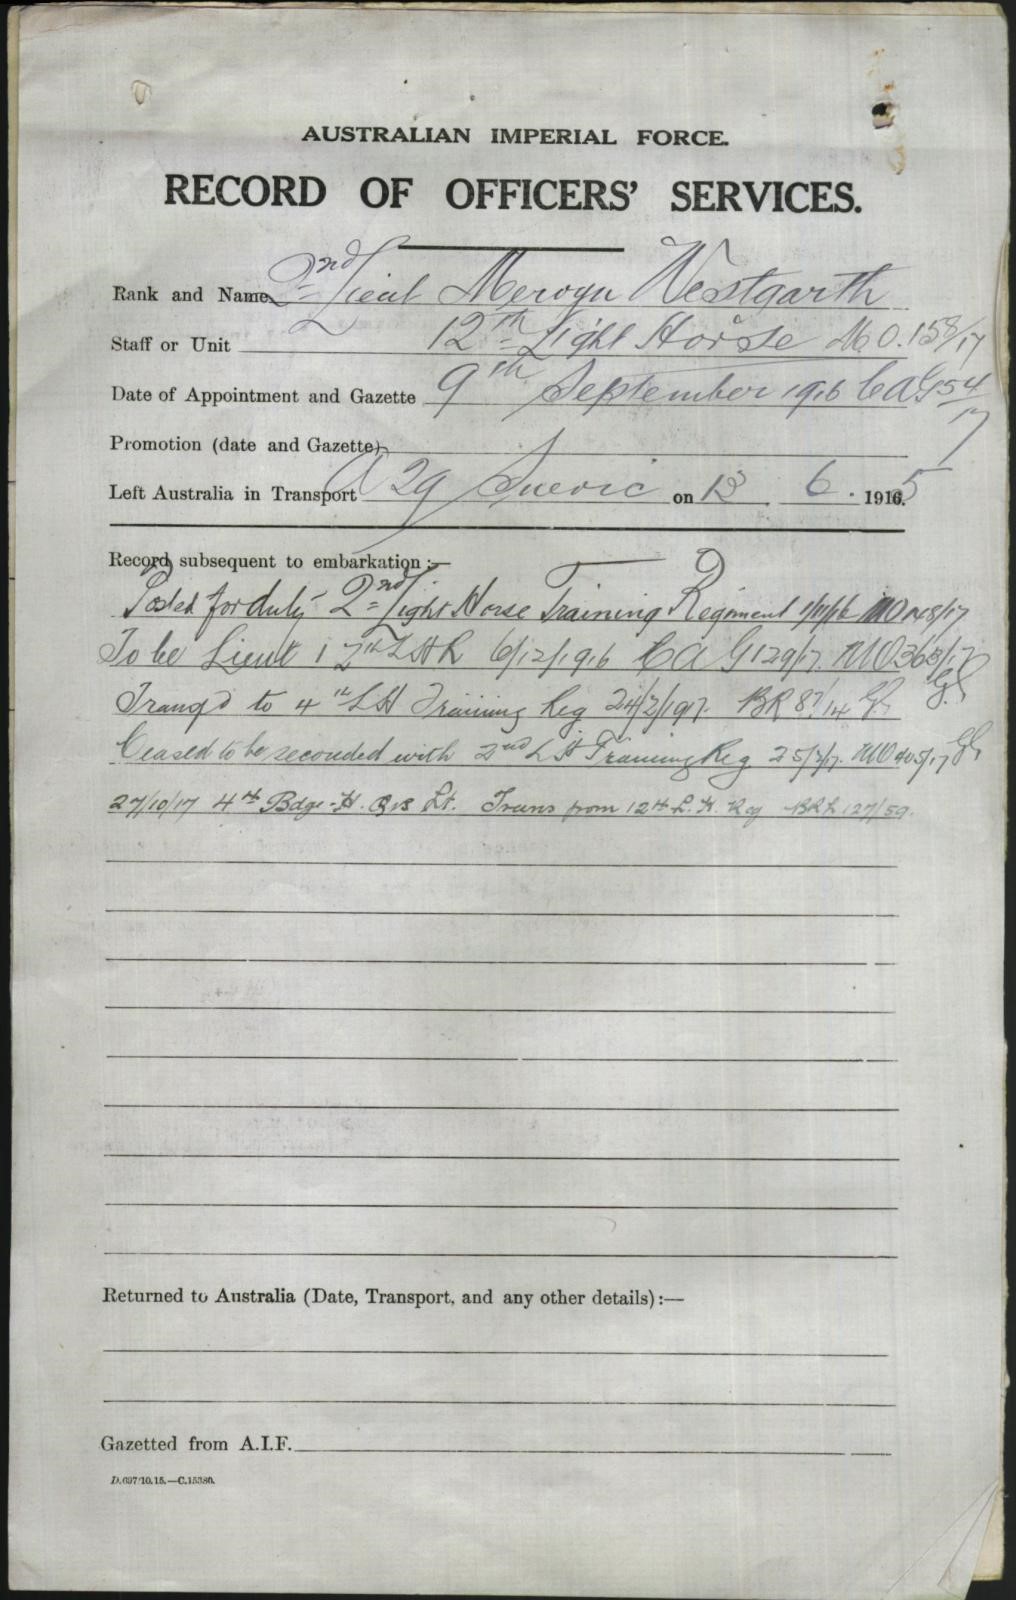 AUSTRALIAN IMPERIAL FORCE.
RECORD OF OFFICERS' SERVICES.
Rank and Name 2nd Lieut Mervyn Westgarth
Staff or Unit 12th Light Horse M.O. 158/17
Date of Appointment and Gazette 9th September 1916 C.A.G 54/17
Promotion (date and Gazette)
Left Australia in Transport A 29 Suevic on 13 6. 1915
Record subsequent to embarkation:—
Posted for duty 2nd Light Horse Training Regiment 1/11/16 MO 148/17
To be Lieut 12th LHR 6/12/1916 C A G 129/17. MO 368/17
Transf'd to 4th LH Training Reg 24/2/1917. BR 87/14
Ceased to be seconded with 2nd LH Training Reg 25/3/17. MO 405/17
27/10/17 4th Bdge H. Qrs Lt. Trans from 12th L. H. Reg BRL 127/59.
Returned to Australia (Date, Transport, and any other details):—
Gazetted from A.I.F.
D.697/10.15.—C.15380.